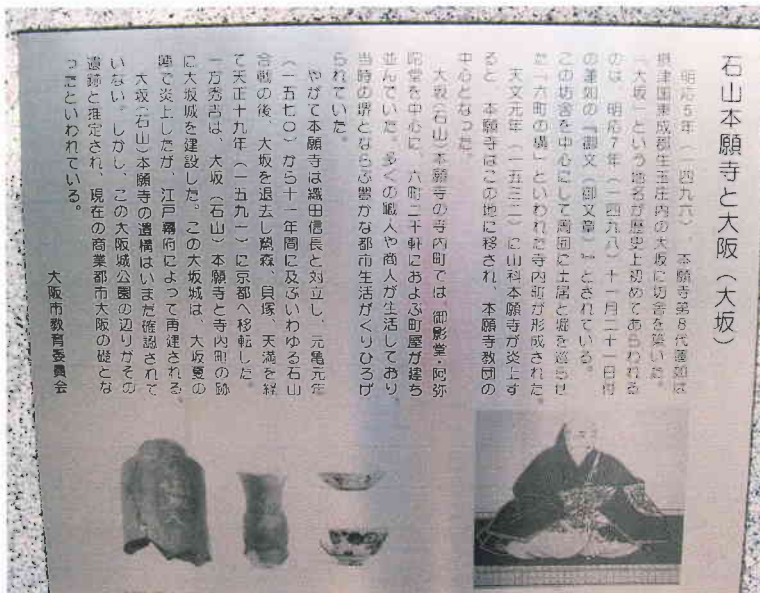 石山本願寺と大阪（大坂）
明応5年（一四九六）、本願寺第8代蓮如は
摂津国東成郡生玉庄内の大坂に坊舎を築いた。
「大坂」という地名が歴史上初めてあらわれる
のは、明応7年（一四九八）十一月二十一日付
の蓮如の『御文（御文章）』とされている。
この坊舎を中心にして周囲に土居と堀を巡らせ
た「六町の構」といわれた寺内町が形成された。
天文元年（一五三二）に山科本願寺が炎上す
ると、本願寺はこの地に移され、本願寺教団の
中心となった。
大坂（石山）本願寺の寺内町では、御影堂・阿弥
陀堂を中心に、六町二千軒におよぶ町屋が建ち
並んでいた。多くの職人や商人が生活しており、
当時の堺とならぶ豊かな都市生活がくりひろげ
られていた。
やがて本願寺は織田信長と対立し、元亀元年
（一五七〇）から十一年間に及ぶいわゆる石山
合戦の後、大坂を退去し鷺森、貝塚、天満を経
て天正十九年（一五九一）に京都へ移転した。
一方秀吉は、大坂（石山）本願寺と寺内町の跡
に大坂城を建設した。この大坂城は、大坂夏の
陣で炎上したが、江戸幕府によって再建される。
大坂（石山）本願寺の遺構はいまだ確認されて
いない。しかし、この大阪城公園の辺りがその
遺跡と推定され、現在の商業都市大阪の礎とな
ったといわれている。
大阪市教育委員会